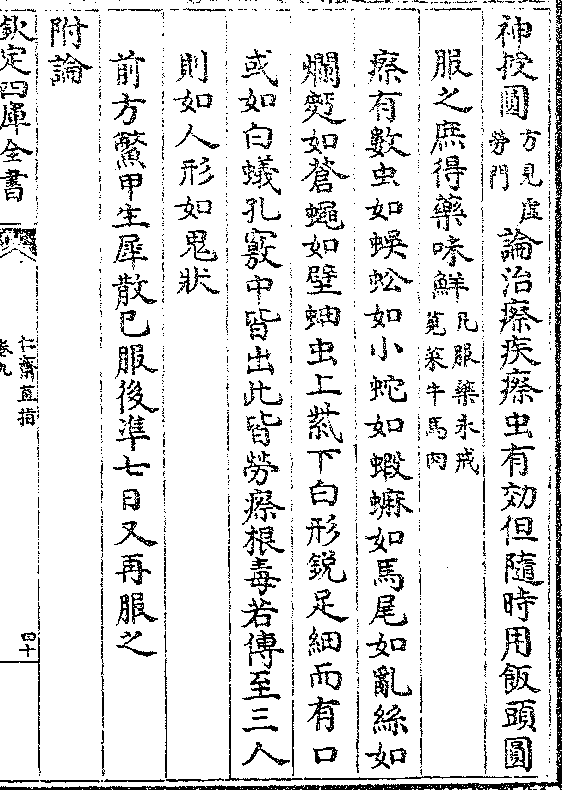 神授圓方見虛勞門論治瘵疾瘵虫有効但隨時用飯頭圓
服之庶得藥味鮮凡服藥永戒莧菜牛馬肉
瘵有數虫如蜈蚣如小蛇如蝦蟆如馬尾如亂絲如
爛麫如蒼蠅如壁蚰虫上紫下白形銳足細而有口
或如白蟻孔竅中皆出此皆勞瘵根毒若傳至三人
則如人形如鬼狀
前方鱉甲生犀散已服後準七日又再服之
附論
欽定四庫全書
仁齋直指
卷九
四十